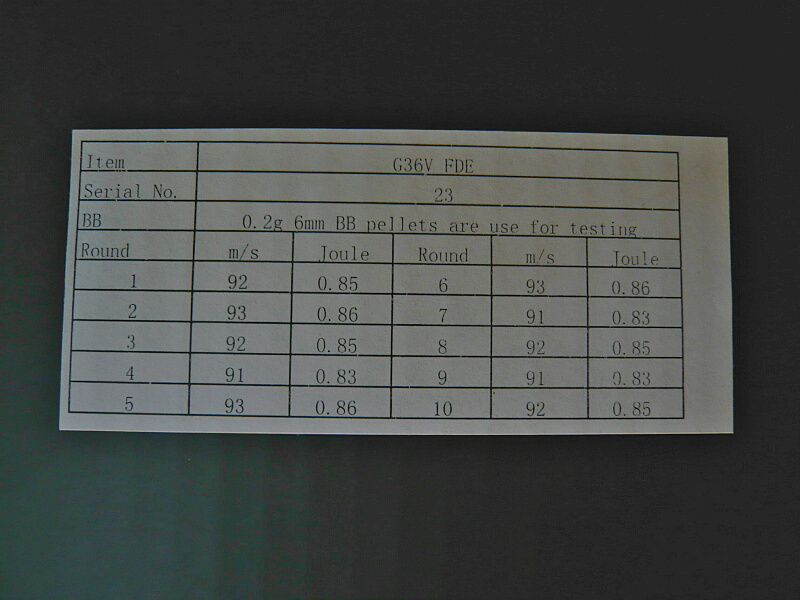 Item G36V FDE
Serial No. 23
BB 0.2g 6mm BB pellets are use for testing
Round m/s Joule Round m/s Joule
1 92 0.85 6 93 0.86
2 93 0.86 7 91 0.83
3 92 0.85 8 92 0.85
4 91 0.83 9 91 0.83
5 93 0.86 10 92 0.85